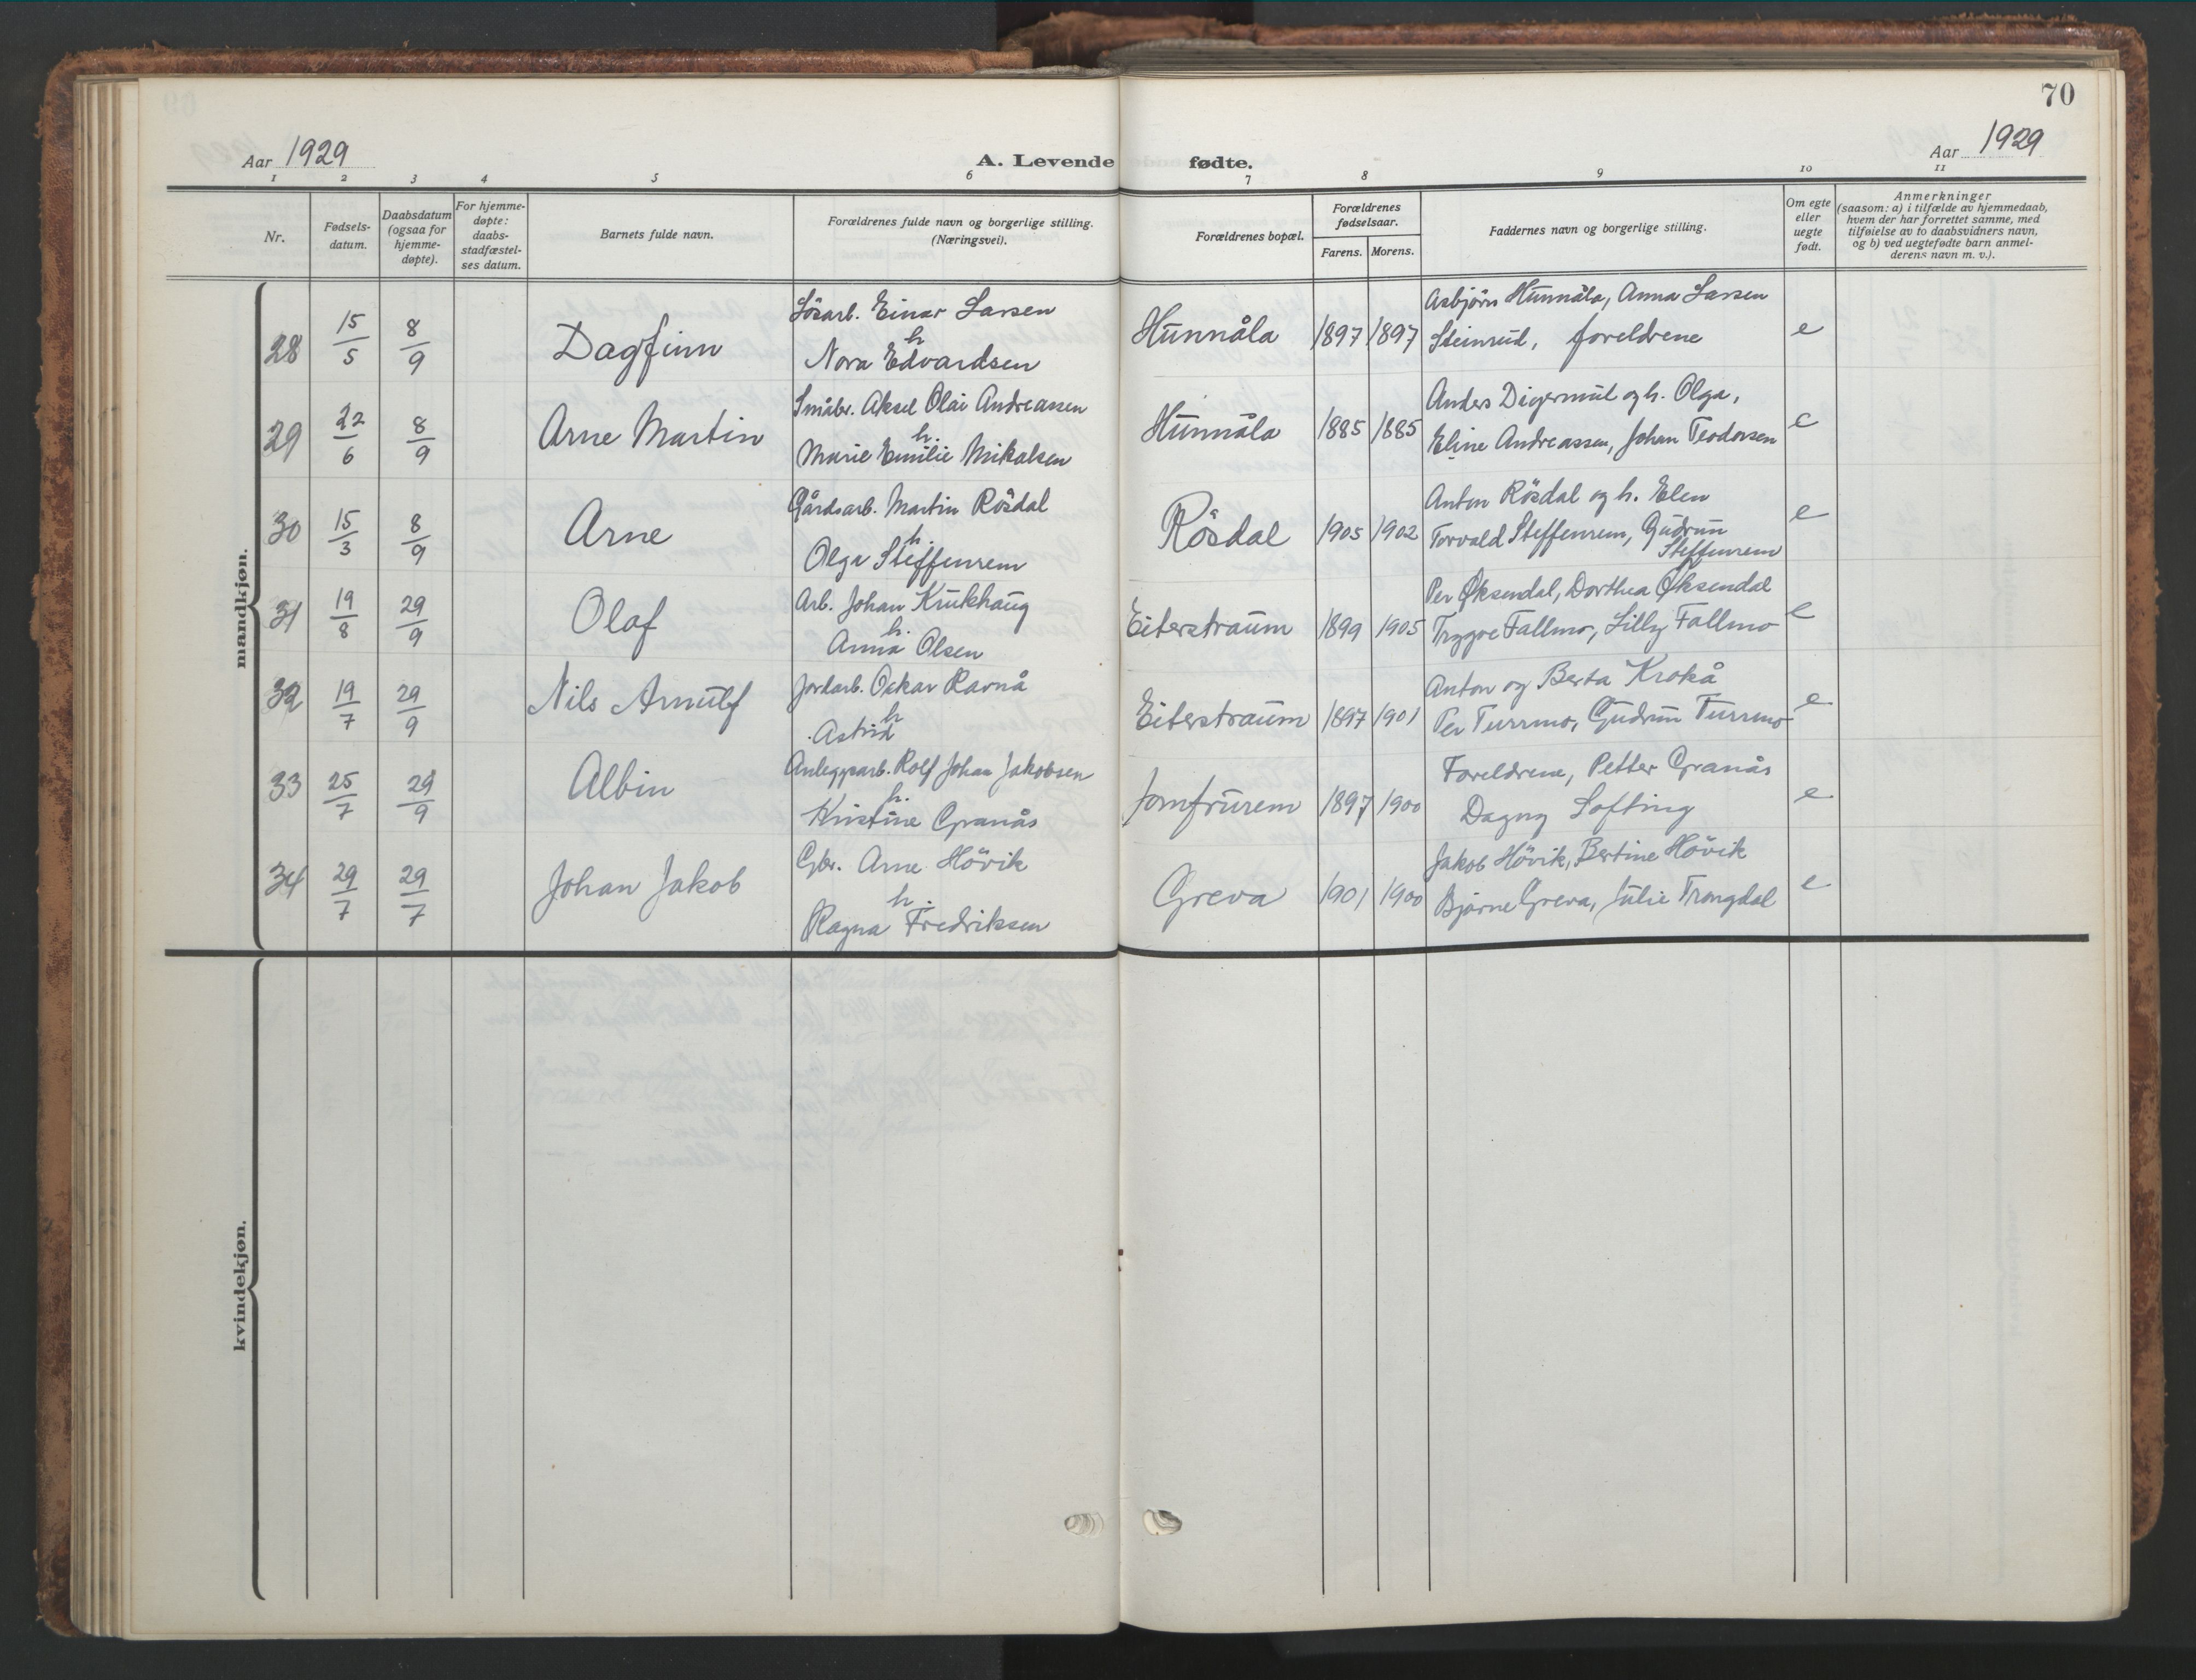 70
Aar 1929
A. Levende fødte.
Aar 1929
1 2 3 4 5 6 7 8 9 10 11
Nr.
Fødsels-
datum.
Daabsdatum
(ogsaa for
hjemme-
døpte).
For hjemme-
døpte:
daabs-
stadfæstel-
ses datum.
Barnets fulde navn.
Forældrenes fulde navn og borgerlige stilling.
(Næringsvei).
Forældrenes bopæl.
Forældrenes
fødselsaar.
Farens. Morens.
Faddernes navn og borgerlige stilling.
Om egte
eller
uegte
født.
Anmerkninger
(saasom: a) i tilfælde av hjemmedaab,
hvem der har forrettet samme, med
tilføielse av to daabsvidners navn,
og b) ved uegtefødte barn anmel-
derens navn m. v.).
mandkjøn.
28 15/5 8/9 Dagfinn
Lösarb. Einar Larsen
h
Nora Edvardsen
Hunnåla 1897 1897
Asbjörn Hunnåla, Anna Larsen
Steinrud, foreldrene
e
29 22/6 8/9 Arne Martin
Småbr. Aksel Olai Andreassen
h.
Marie Emilie Mikalsen
Hunnåla 1885 1885
Anders Digermul og h. Olga,
Eline Andreassen, Johan Teodorsen
e
30 15/3 8/9 Arne
Gårdsarb. Martin Rösdal
h.
Olga Steffenrem
Rösdal 1905 1902
Anton Rösdal og h. Elen
Torvald Steffenrem, Gudrun
Steffenrem
e
31 19/8 29/9 Olaf
Arb. Johan Krukhaug
h.
Anna Olsen
Eiterstraum 1899 1905
Per Øksendal, Dorthea Øksendal
Trygve Fallmo, Lilly Fallmo
e
32 19/7 29/9 Nils Arnulf
Jordarb. Oskar Ravnå
h
Astrid
Eiterstraum 1897 1901
Anton og Berta Krokå
Per Turrmo, Gudrun Turrmo
e
33 25/7 29/9 Albin
Anleggsarb. Rolf Johan Jakobsen
h.
Kristine Granås
Jomfrurem 1897 1900
Foreldrene, Petter Granås
Dagny Softing
e
34 29/7 29/7 Johan Jakob
Gbr. Arne Hövik
h.
Ragna Fredriksen
Greva 1901 1900
Jakob Hövik, Bertine Hövik
Bjarne Greva, Julie Trongdal
e
kvindekjøn.